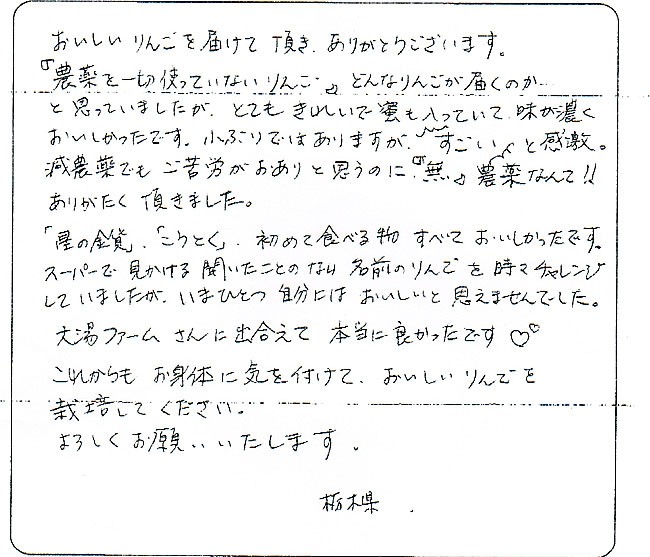 おいしいりんごを届けて頂き、ありがとうございます。
『農薬を一切使っていないりんご』どんなりんごが届くのか
と思っていましたが、とてもきれいで蜜も入っていて、味が濃く
おいしかったです。小ぶりではありますが、"すごい"と感激。
減農薬でもご苦労がおありと思うのに『無』農薬なんて!!
ありがたく頂きました。
「星の金貨」、「こうとく」、初めて食べる物すべておいしかったです。
スーパーで見かける聞いたことのない名前のりんごを時々チャレンジ
していましたが、いまひとつ自分にはおいしいと思えませんでした。
大湯ファームさんに出合えて本当に良かったです♡♡
これからもお身体に気を付けて、おいしいりんごを
栽培してください。
よろしくお願いいたします。
栃木県